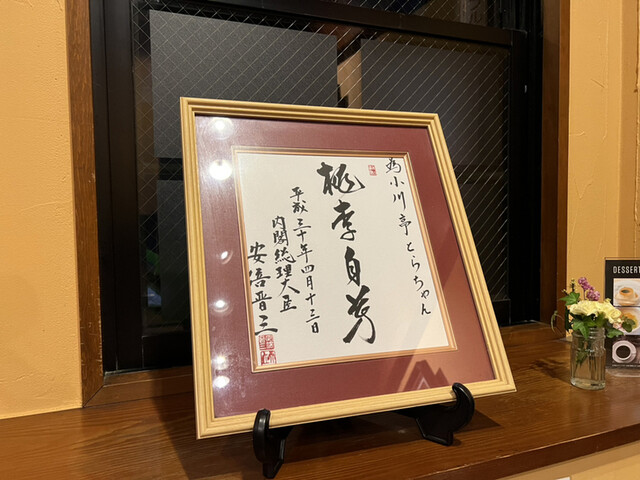 為小川亭とらちゃん
桃李自芳
平成三十年四月十三日
内閣総理大臣
安倍晋三
DESSERT